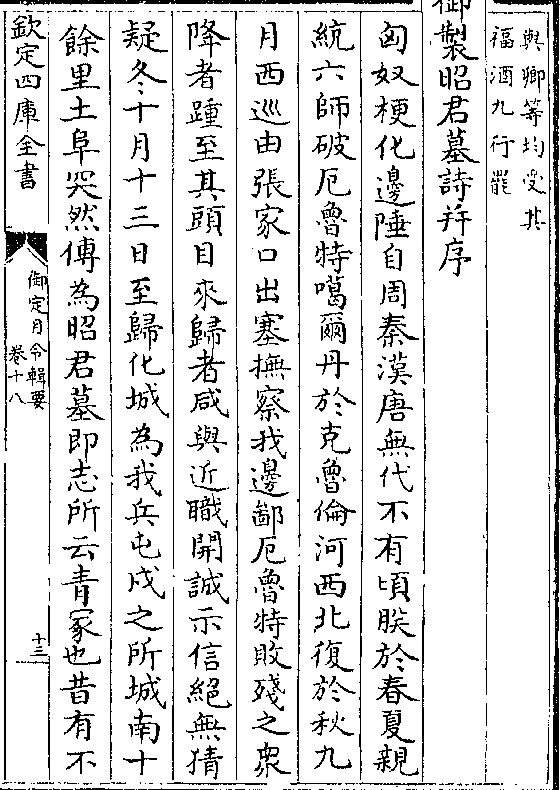 輿卿等均受其
福酒九行罷
御製昭君墓詩并序
匈奴梗化邊陲自周秦漢唐無代不有頃朕於春夏親
統六師破厄魯特噶爾丹於克魯倫河西北復於秋九
月西巡由張家口出塞撫察我邊鄙厄魯特敗殘之衆
降者踵至其頭目來歸者咸與近職開誠示信絕無猜
疑冬十月十三日至歸化城為我兵屯戍之所城南十
餘里土阜突然傳為昭君墓即志所云青冢也昔有不
欽定四庫全書
御定月令輯要
卷十八
十三